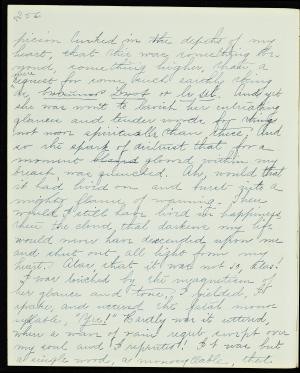 256
picion lurked in the depths of my
heart, that this was something be-
yond, something higher, than a
mere
request for some such earthly thing
as
she was wont to lavish her entreating
glances and tender words for things
not more spiritually than these; and
so the spark of distrust that for a
moment glowed within my
breast was quenched. Ah, would that
it had lived on and burst into a
mighty flame of warning. Then
would I still have lived in happiness
then the cloud, that darkens my life
would never have descended upon me
and shut out all light from my
heart. Alas that it was not so, alas!
I was touched by the magnetism of
her glance and tone, I yielded, I
spake, and uttered the fatal mono-
syllable, "Yes!" Hardly was it uttered,
when a wave of vain regret swept over
my soul and I repented! It was but
a single word, a monosyllable, that